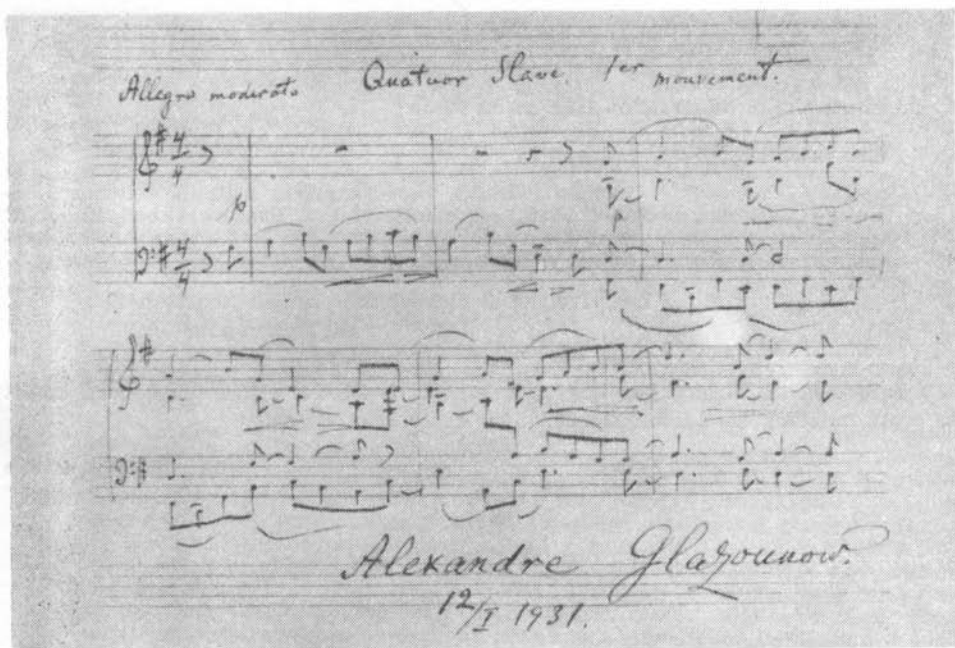 Allegro moderato Quatuor Slave. 1er mouvement.
4/4
p
4/4
p
Alexandre Glazounow.
12/I 1931.